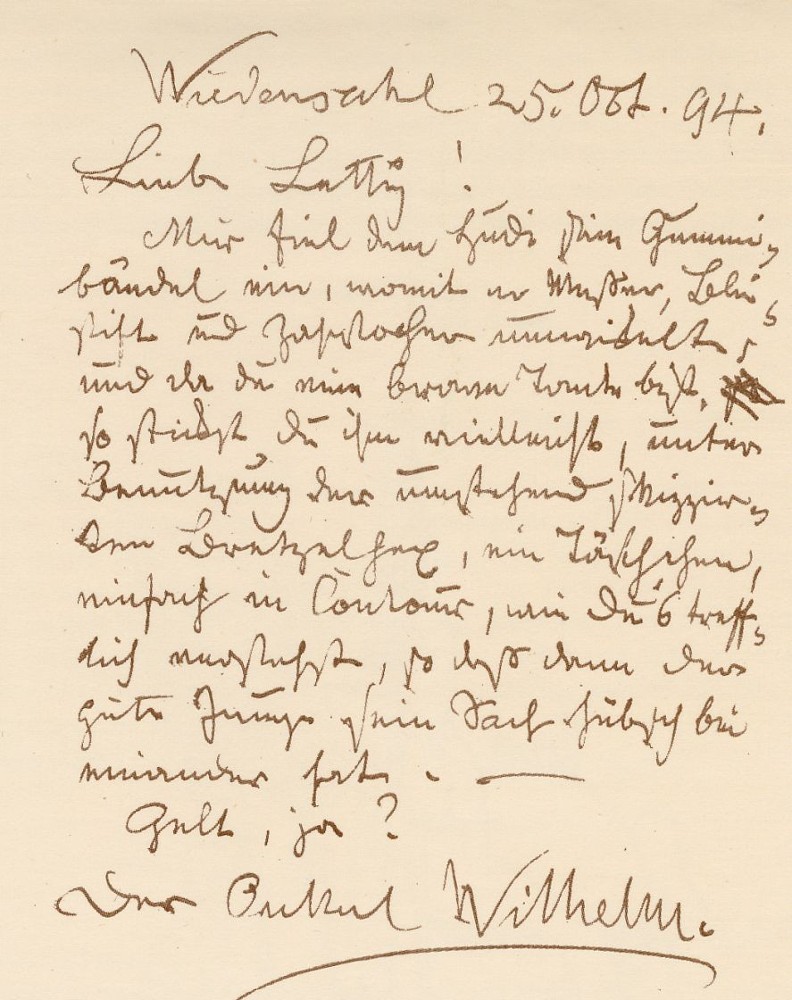 Wiedensahl 25. Okt. 94.
Liebe Letty!
Mir fiel dem Hudi sein Gummi-
bändel ein, womit er Messer, Blei-
stift und Zahnstocher umwickelt;
und da du eine brave Tante bist,
so stickst du ihm vielleicht, unter
Benutzung der umstehend skizzir-
ten Bretzelhex, ein Täschchen,
einfach in Contour, wie du's treff-
lich verstehst, so daß dann der
gute Junge sein Sach hübsch bei
einander hat. —
Gelt, ja?
Der Onkel Wilhelm.